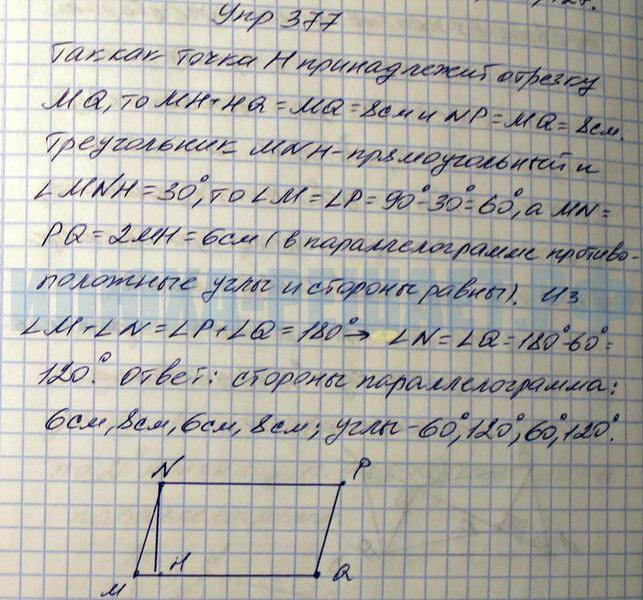 Упр 377
Так как точка H принадлежит отрезку
MQ, то MH+HQ=MQ=8см и NP=MQ=8см.
Треугольник MNH-прямоугольный и
∠MNH=30°, то ∠M=∠P=90°-30°=60°, а MN=
PQ=2MH=6см (в параллелограмме противо-
положные углы и стороны равны). Из
∠M+∠N=∠P+∠Q=180° → ∠N=∠Q=180°-60°=
120°. Ответ: стороны параллелограмма:
6см, 8см, 6см, 8см; углы-60°, 120°, 60°, 120°.
N P
M H Q